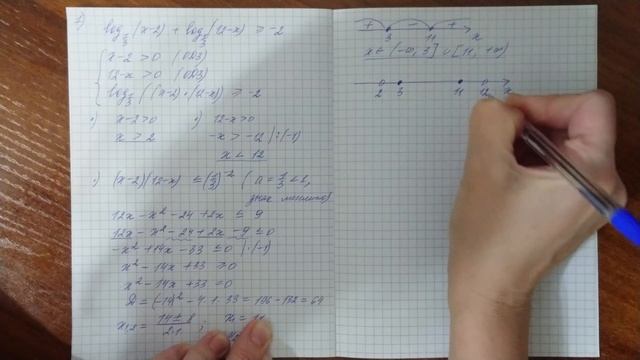 log_{1/3}(x-2) + log_{1/3}(12-x) ≥ -2
x-2>0 (ОДЗ)
12-x>0 (ОДЗ)
log_{1/3}((x-2)·(12-x)) ≥ -2
x-2>0
x > 2
12-x>0
-x > -12 |:(-1)
x < 12
(x-2)(12-x) ≤ (1/3)^{-2} (a = 1/3 < 1,
12x - x² - 24 + 2x ≤ 9
12x - x² - 24 + 2x - 9 ≤ 0
-x² + 14x - 33 ≤ 0 |:(-1)
x² - 14x + 33 ≥ 0
x² - 14x + 33 = 0
D = (-14)² - 4·1·33 = 196 - 132 = 64
x_{1,2} = (14 ± 8)/(2·1) ; x₁ = 11
+ - +
3 11 x
x ∈ (-∞, 3] ∪ [11, +∞)
2 3 11 12 x